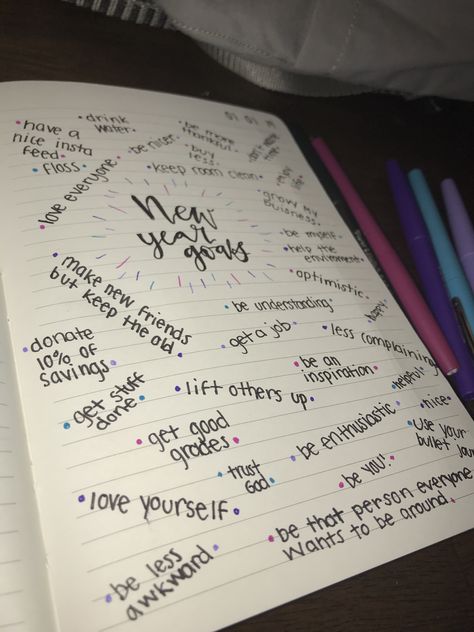 • have a
nice insta
feed •
• drink
water •
• be nicer •
• be more
thankful •
• buy
less •
01 01
• floss •
• love everyone •
• keep room clean •
enjoy
life •
• grow my
buisness •
New
year
goals
• be myself •
• help the
environment •
• optimistic •
• happy •
• make new friends
but keep the old •
• be understanding •
• get a job •
• less complaining •
• donate
10% of
savings •
• be an
inspiration •
• helpful •
• get stuff
done •
• lift others up •
• nice •
• get good
grades •
• be enthusiastic •
• use your
bullet
• trust
God •
• be you! •
• love yourself •
• be that person everyone
wants to be around •
• be less
awkward •